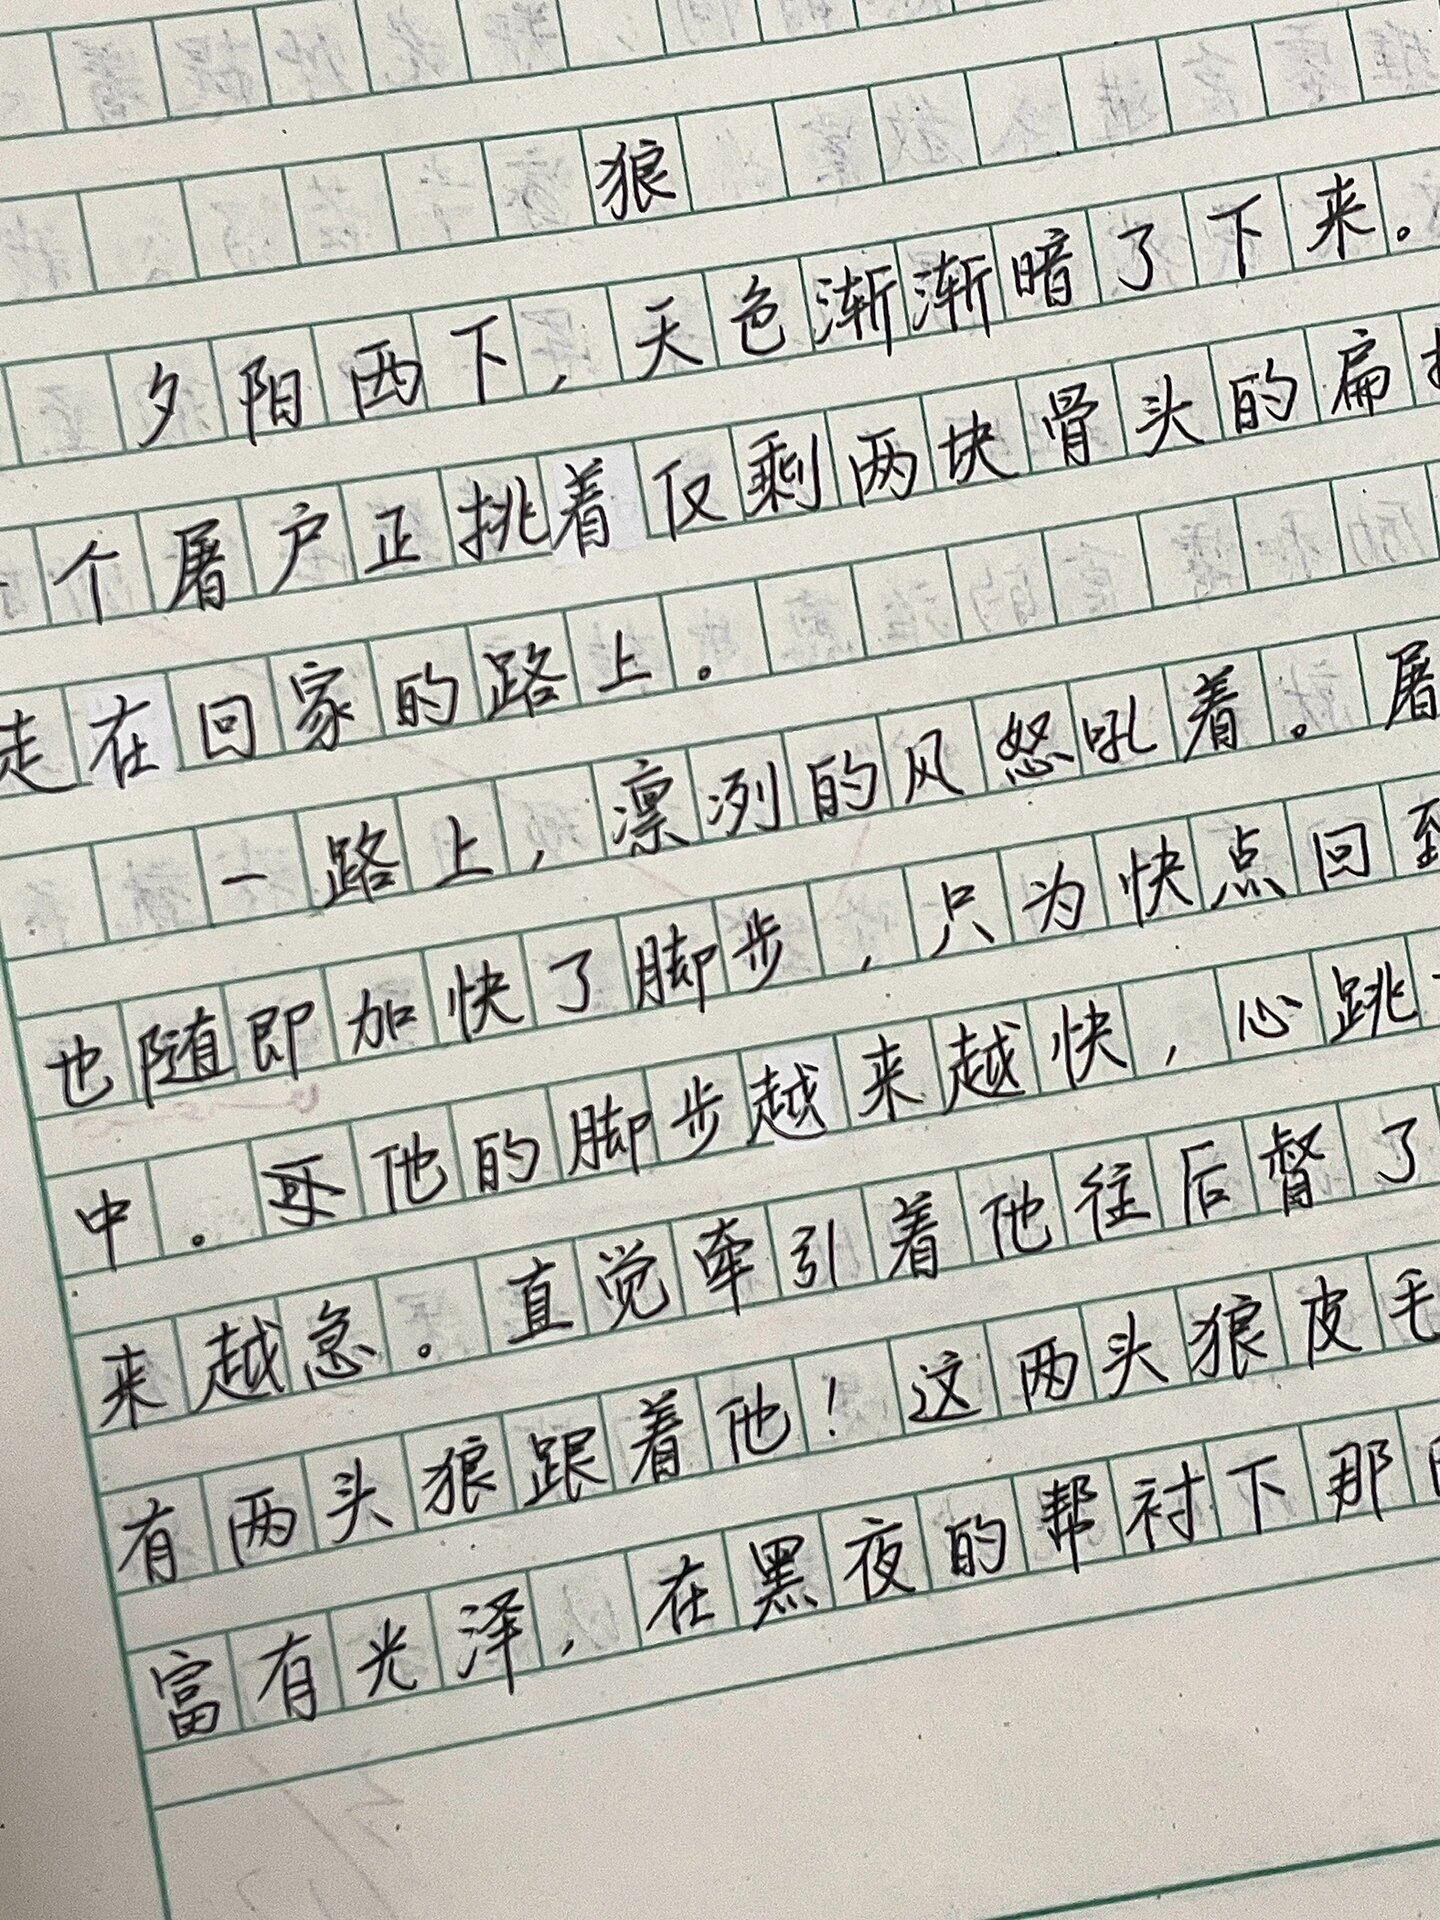 狼
夕阳西下，天色渐渐暗了下来。
个屠户正挑着仅剩两块骨头的扁
走在回家的路上。
一路上，凛冽的风怒吼着。屠
也随即加快了脚步，只为快点回到
中。他的脚步越来越快，心跳
来越急。直觉牵引着他往后督了
有两头狼跟着他！这两头狼皮毛
富有光泽，在黑夜的帮衬下那